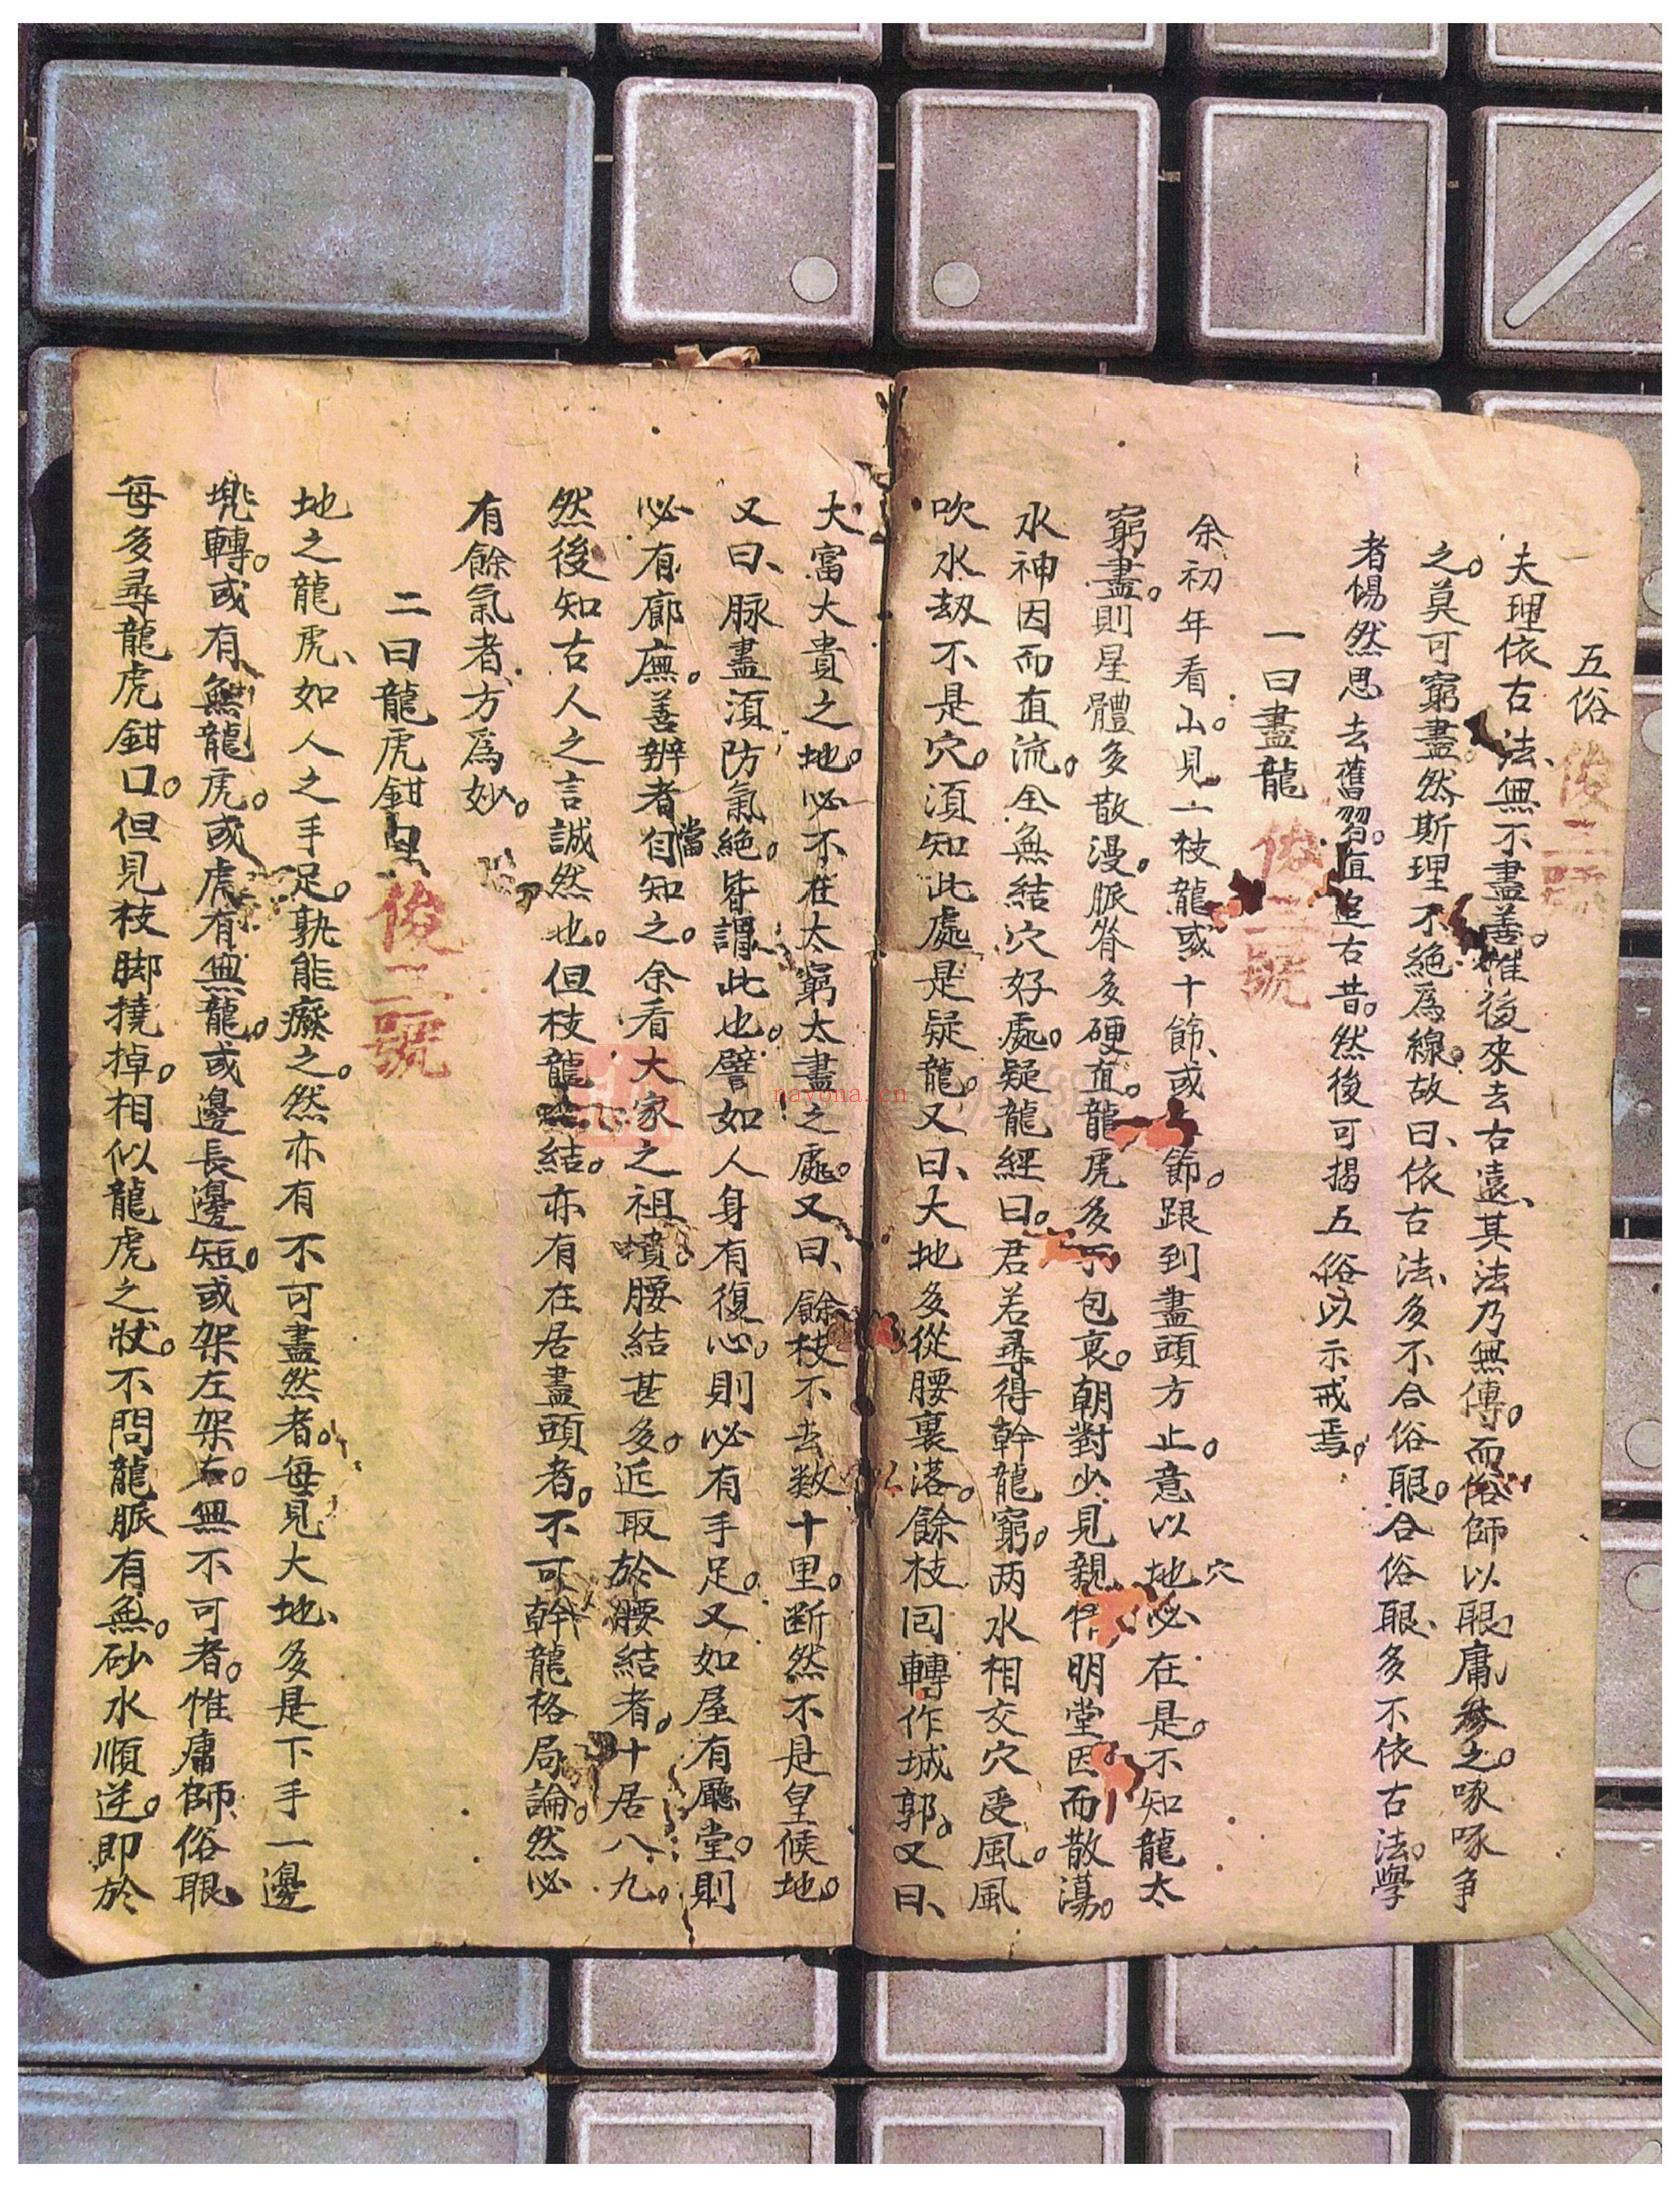 五俗 俊二號
夫理依古法、無不盡善。惟後來去古遠、其法乃無傳。而俗師以眼庸參之。啄啄爭
之。莫可窮盡。然斯理不絕為線。故曰、依古法、多不合俗眼。合俗眼、多不依古法。學
者惕然思去舊習。直追古昔。然後可揭五俗以示戒焉。
一曰盡龍 俊二號
余初年看山。見一枝龍或十節、或節。跟到盡頭方止。意以地穴必在是。不知龍太
窮盡。則星體多散漫。脈脊多硬直。龍虎多不包裹。朝對少見親。明堂因而散蕩。
水神因而直流。全無結穴好處。疑龍經曰。君若尋得幹龍窮。两水相交穴受風。風
吹水刼不是穴。須知此處是疑龍。又曰、大地多從腰裏落。餘枝囘轉作城郭。又曰、
大富大貴之地。必不在太窮太盡之處。又曰、餘枝不去数十里。断然不是皇候地。
又曰、脉盡須防氣絕。皆謂此也。譬如人身有復心。則必有手足。又如屋有廳堂。則
必有廊廡。善辨者當自知之。余看大家之祖墳腰結甚多。近取於腰結者。十居八九。
然後知古人之言誠然也。但枝龍結。亦有在居盡頭者。不可幹龍格局論。然必
有餘氣者、方為妙。
二曰龍虎鉗 俊二號
地之龍虎、如人之手足。孰能癈之。然亦有不可盡然者。每見大地、多是下手一邊
兠轉。或有無龍虎。或虎有無龍。或邊長邊短。或架左架右。無不可者。惟庸師俗眼
每多尋龍虎鉗口。但見枝脚撓掉。相似龍虎之狀。不問龍脈有無。砂水順逆。即於
nayona.cn